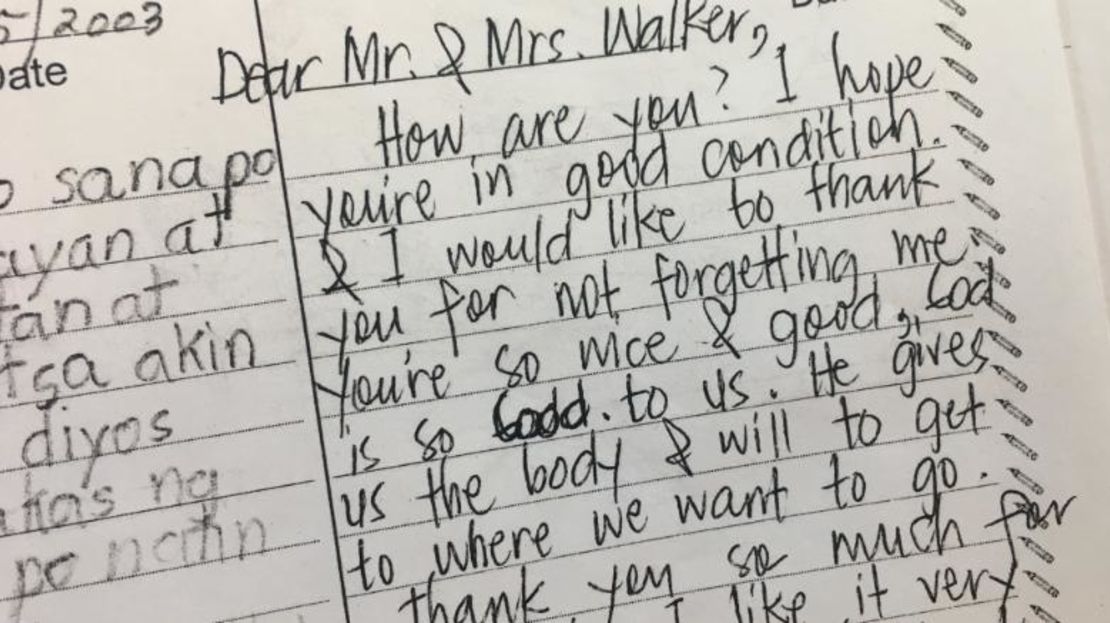 5/2003
Date
sana po
ayan at
tan at
tsa akin
diyos
kas ng
po natin
Dear Mr. & Mrs. Walker,
How are you? I hope
you're in good condition.
& I would like to thank
you for not forgetting me.
You're so nice & good, God
is so Godd. to us. He gives
us the body & will to get
to where we want to go.
thank you so much for
I like it very